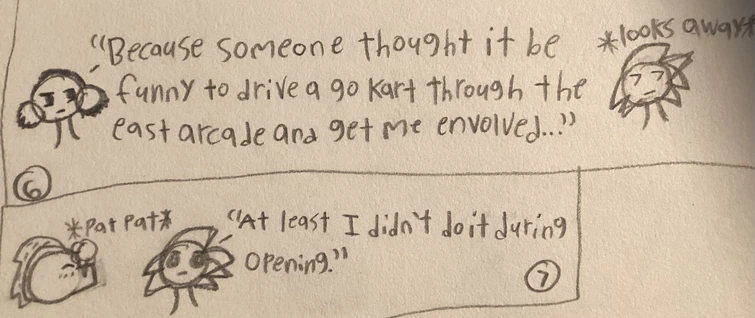 "Because someone thought it be
funny to drive a go kart through the
east arcade and get me envolved..."
*looks away*
6
*Pat Pat*
"At least I didn't do it during
opening."
7